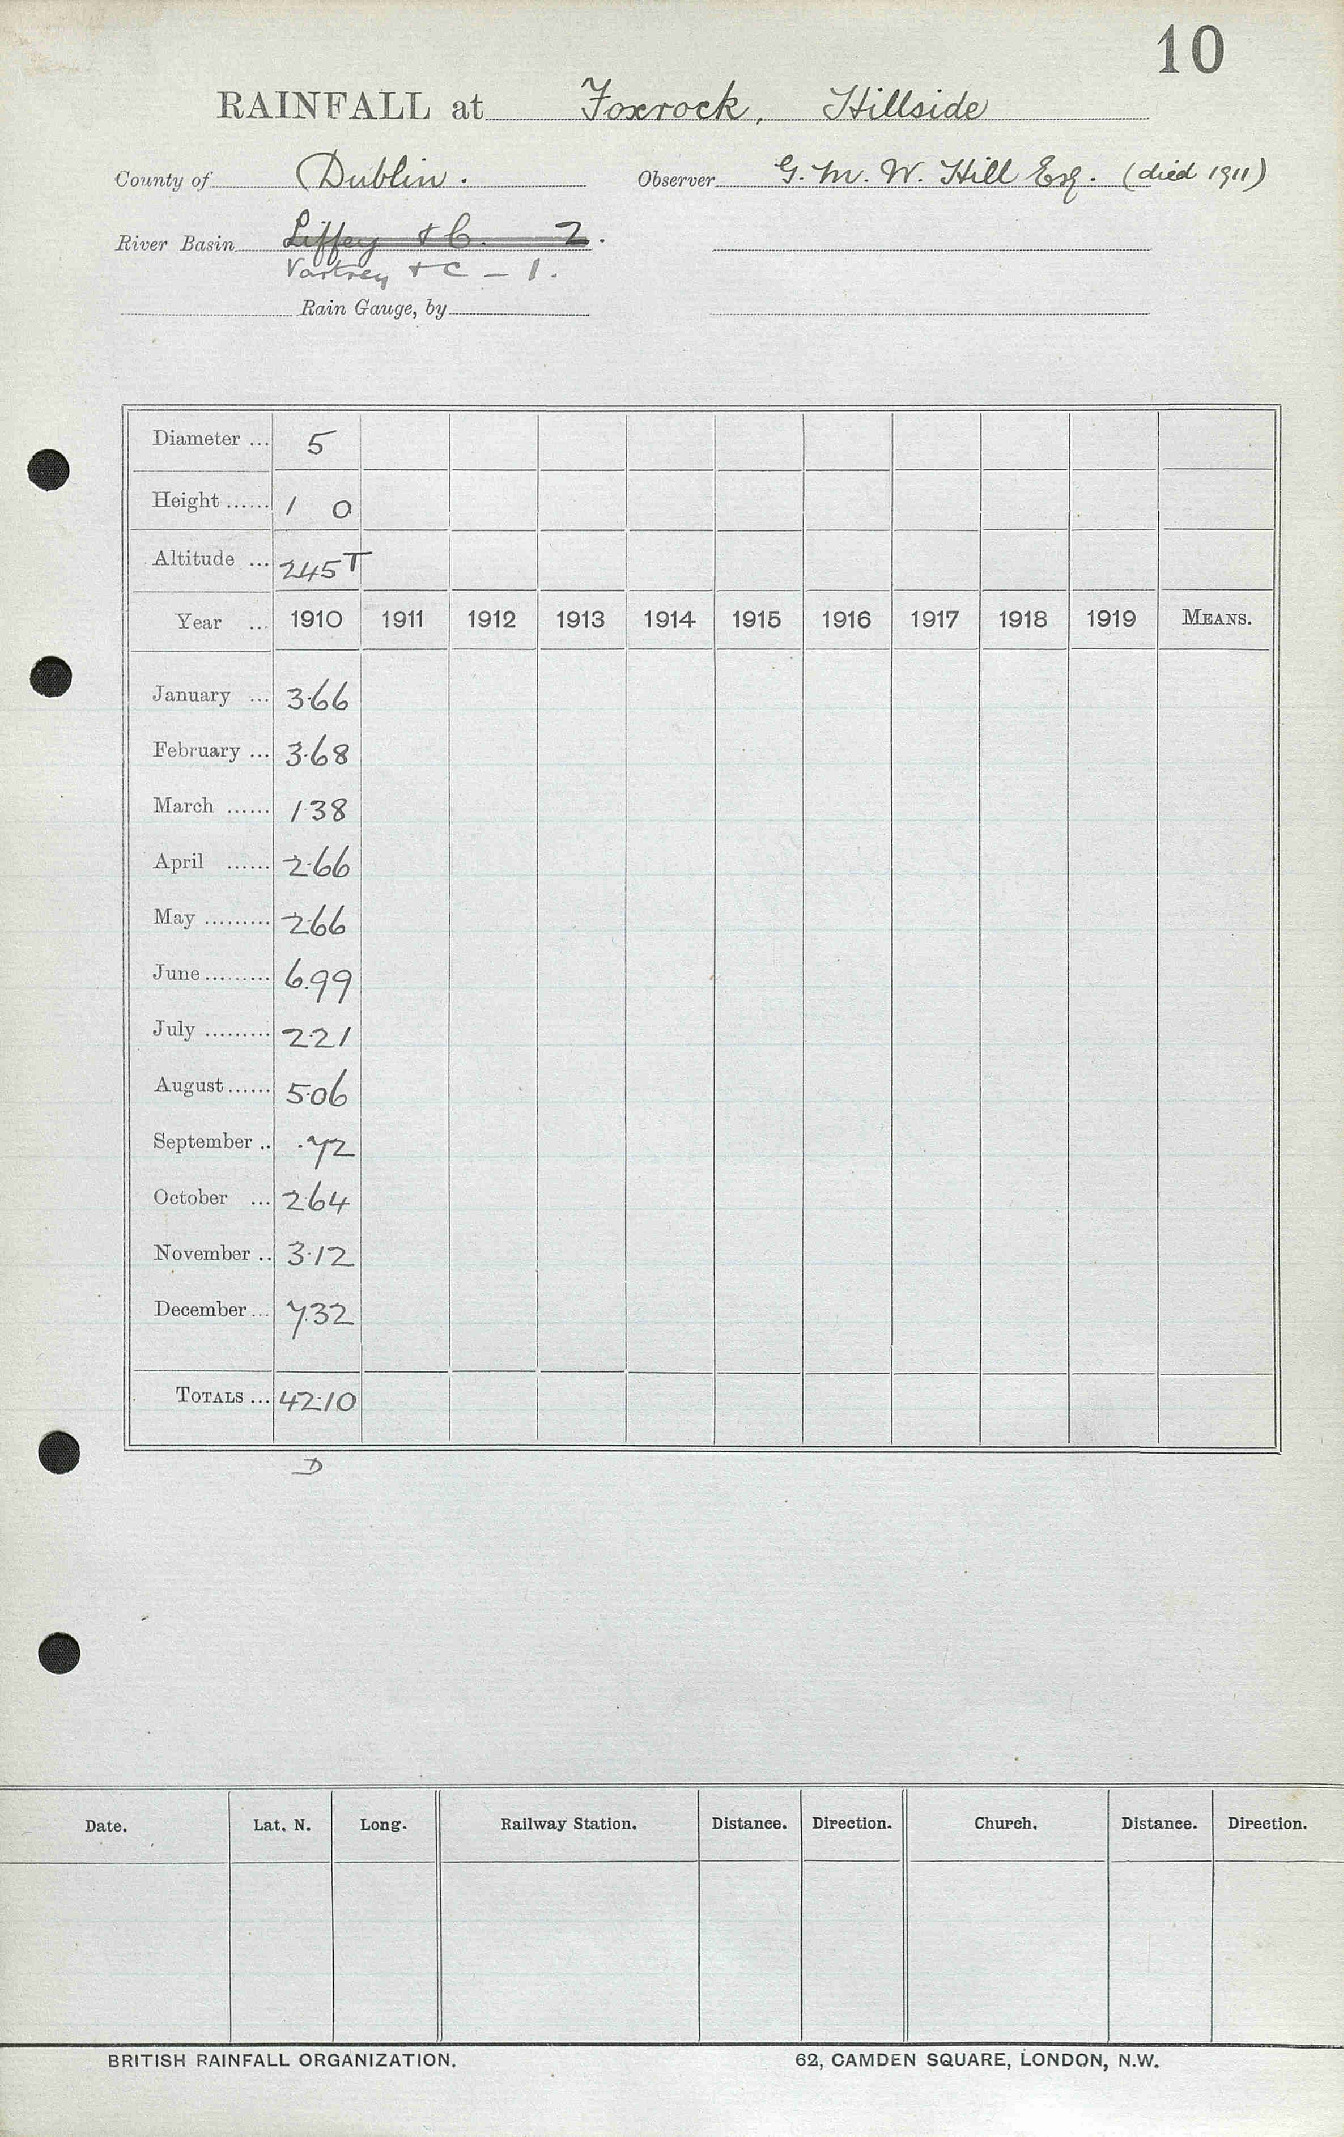 10
RAINFALL at Foxrock, Hillside
County of Dublin. Observer G. M. W. Hill Esq. (died 1911)
River Basin Liffey & C. 2.
Vartrey & C - 1.
Rain Gauge, by
Diameter ... 5
Height ...... 1 0
Altitude ... 245 T
Year ... 1910 1911 1912 1913 1914 1915 1916 1917 1918 1919 MEANS.
January ... 3.66
February ... 3.68
March ...... 1.38
April ...... 2.66
May ......... 2.66
June ......... 6.99
July ......... 2.21
August ...... 5.06
September .. .72
October ... 2.64
November .. 3.12
December ... 7.32
TOTALS ... 42.10
D
Date. Lat. N. Long. Railway Station. Distance. Direction. Church. Distance. Direction.
BRITISH RAINFALL ORGANIZATION. 62, CAMDEN SQUARE, LONDON, N.W.